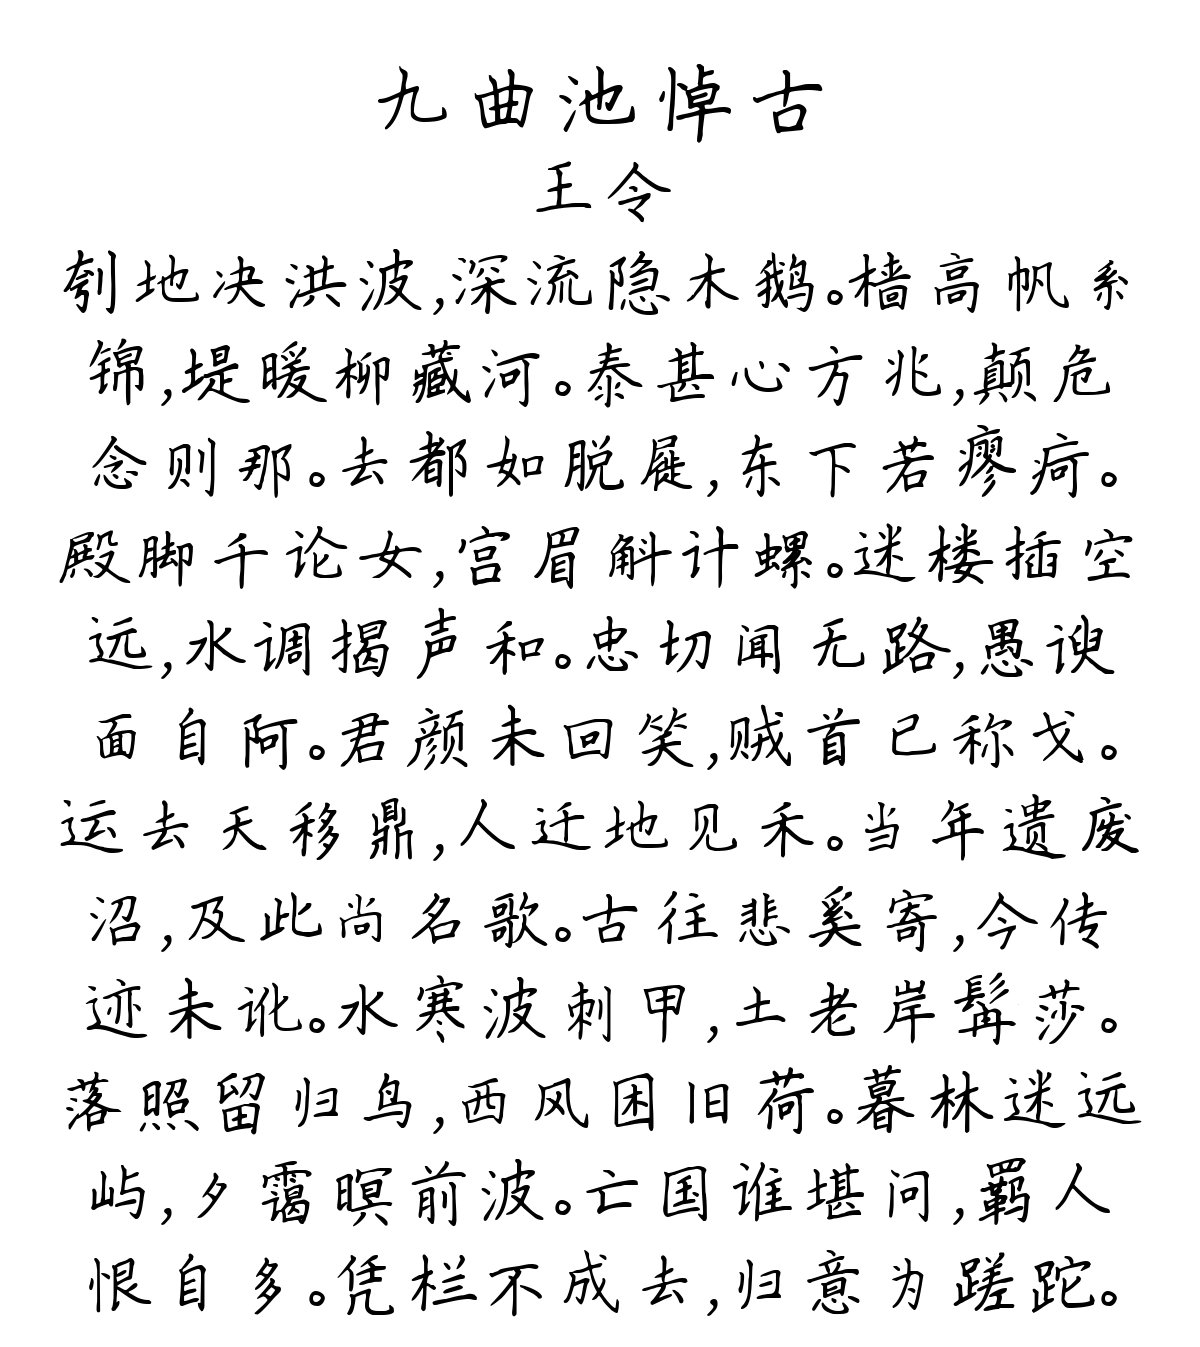 九曲池悼古
王令
刳地决洪波,深流隐木鹅。樯高帆系
锦,堤暖柳藏河。泰甚心方兆,颠危
念则那。去都如脱屣,东下若瘳疴。
殿脚千论女,宫眉斛计螺。迷楼插空
远,水调揭声和。忠切闻无路,愚谀
面自阿。君颜未回笑,贼首已称戈。
运去天移鼎,人迁地见禾。当年遗废
沼,及此尚名歌。古往悲奚寄,今传
迹未讹。水寒波刺甲,土老岸髯莎。
落照留归鸟,西风困旧荷。暮林迷远
屿,夕霭暝前波。亡国谁堪问,羁人
恨自多。凭栏不成去,归意为蹉跎。